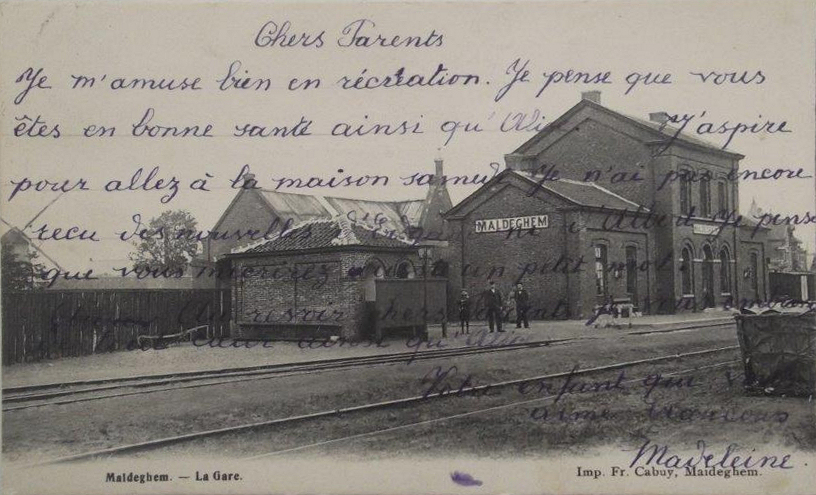 Chers Parents
Je m'amuse bien en récréation. Je pense que vous
êtes en bonne santé ainsi qu'Alin. J'aspire
pour allez à la maison samedi Je n'ai pas encore
recu des nouvelles ni d'Albert Je pense
que vous un petit mot.
Au revoir chers parents Je vous
tout cœur ainsi qu'
Votre enfant qui vous
aime
Madeleine.
MALDEGHEM
Maldeghem. — La Gare.
Imp. Fr. Cabuy, Maldeghem.